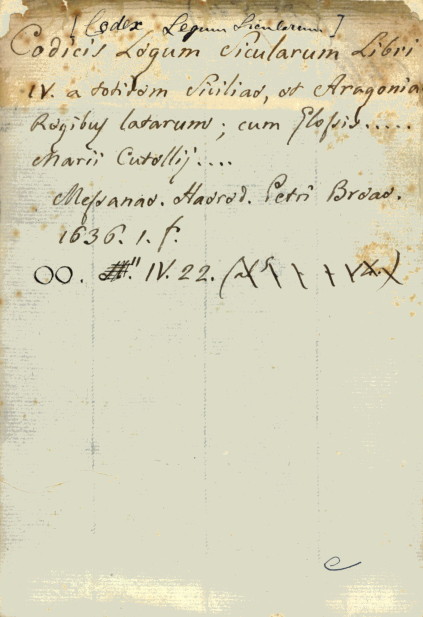 [Codex Legum Sicularum]
Codicis Legum Sicularum Libri
IV. a totidem Siciliae, et Aragonia
Regibus latarum; cum Glossis.....
Marii Cutellij....
Messanae. Haered. Petri Breae.
1636. 1. f.
OO. IV. 22. (a
e